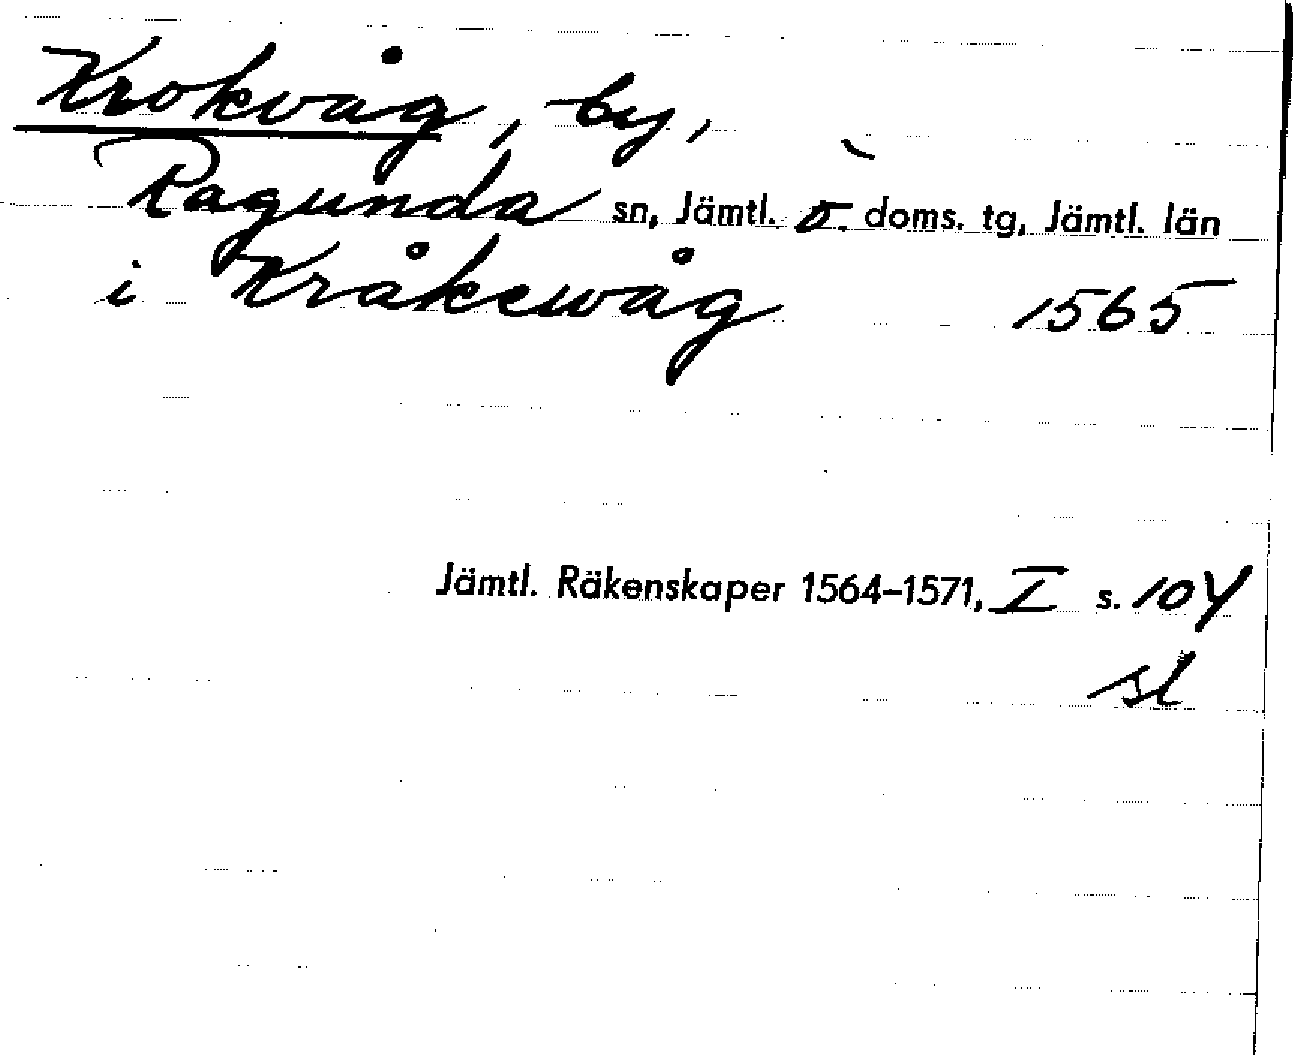 Krokvåg, by,
Ragunda sn, Jämtl. ö. doms. tg, Jämtl. län
i Kråkewåg 1565
Jämtl. Räkenskaper 1564–1571, I s. 104
sl